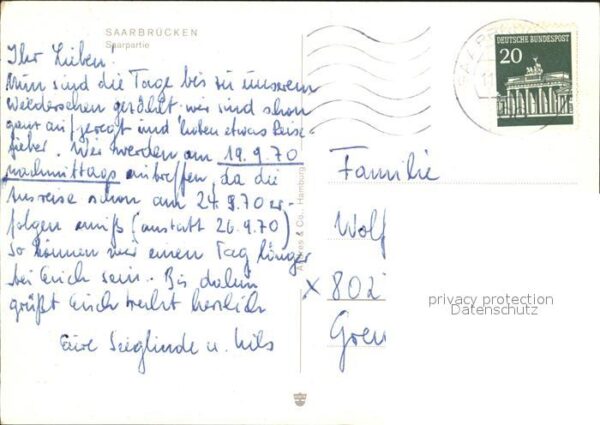 SAARBRÜCKEN
Saarpartie
Ihr Lieben!
Nun sind die Tage bis zu unserem
Wiedersehen gezählt wir sind schon
ganz aufgeregt und haben etwas Reise-
fieber. Wir werden am 19.9.70
nachmittags eintreffen, da die
Ausreise schon am 24.9.70 er-
folgen muß (anstatt 26.9.70)
So können wir einen Tag länger
bei Euch sein. Bis dahin
grüßt Euch recht herzlich
Eure Sieglinde u. Nils
& Co., Hamburg
DEUTSCHE BUNDESPOST
20
Familie
Wolf
X 802
privacy protection
Datenschutz